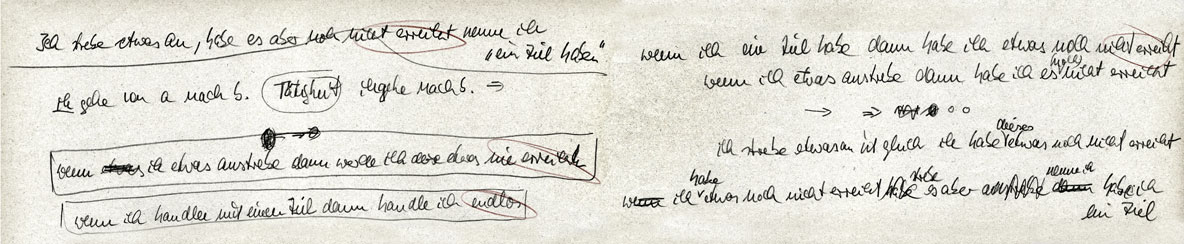 Ich strebe etwas an, habe es aber noch nicht erreicht nenne ich
„ein Ziel haben"
Ich gehe von a nach b. Tätigkeit ich gehe nach b. ⇒
wenn ich etwas anstrebe dann werde ich etwas nie erreichen
wenn ich handle mit einem Ziel dann handle ich endlos
wenn ich ein Ziel habe dann habe ich etwas noch nicht erreicht
wenn ich etwas anstrebe dann habe ich es noch nicht erreicht
→ ⇒
ich strebe etwas an ist gleich ich habe dieses etwas noch nicht erreicht
ich habe etwas noch nicht erreicht strebe es aber an nenne ich
ein Ziel